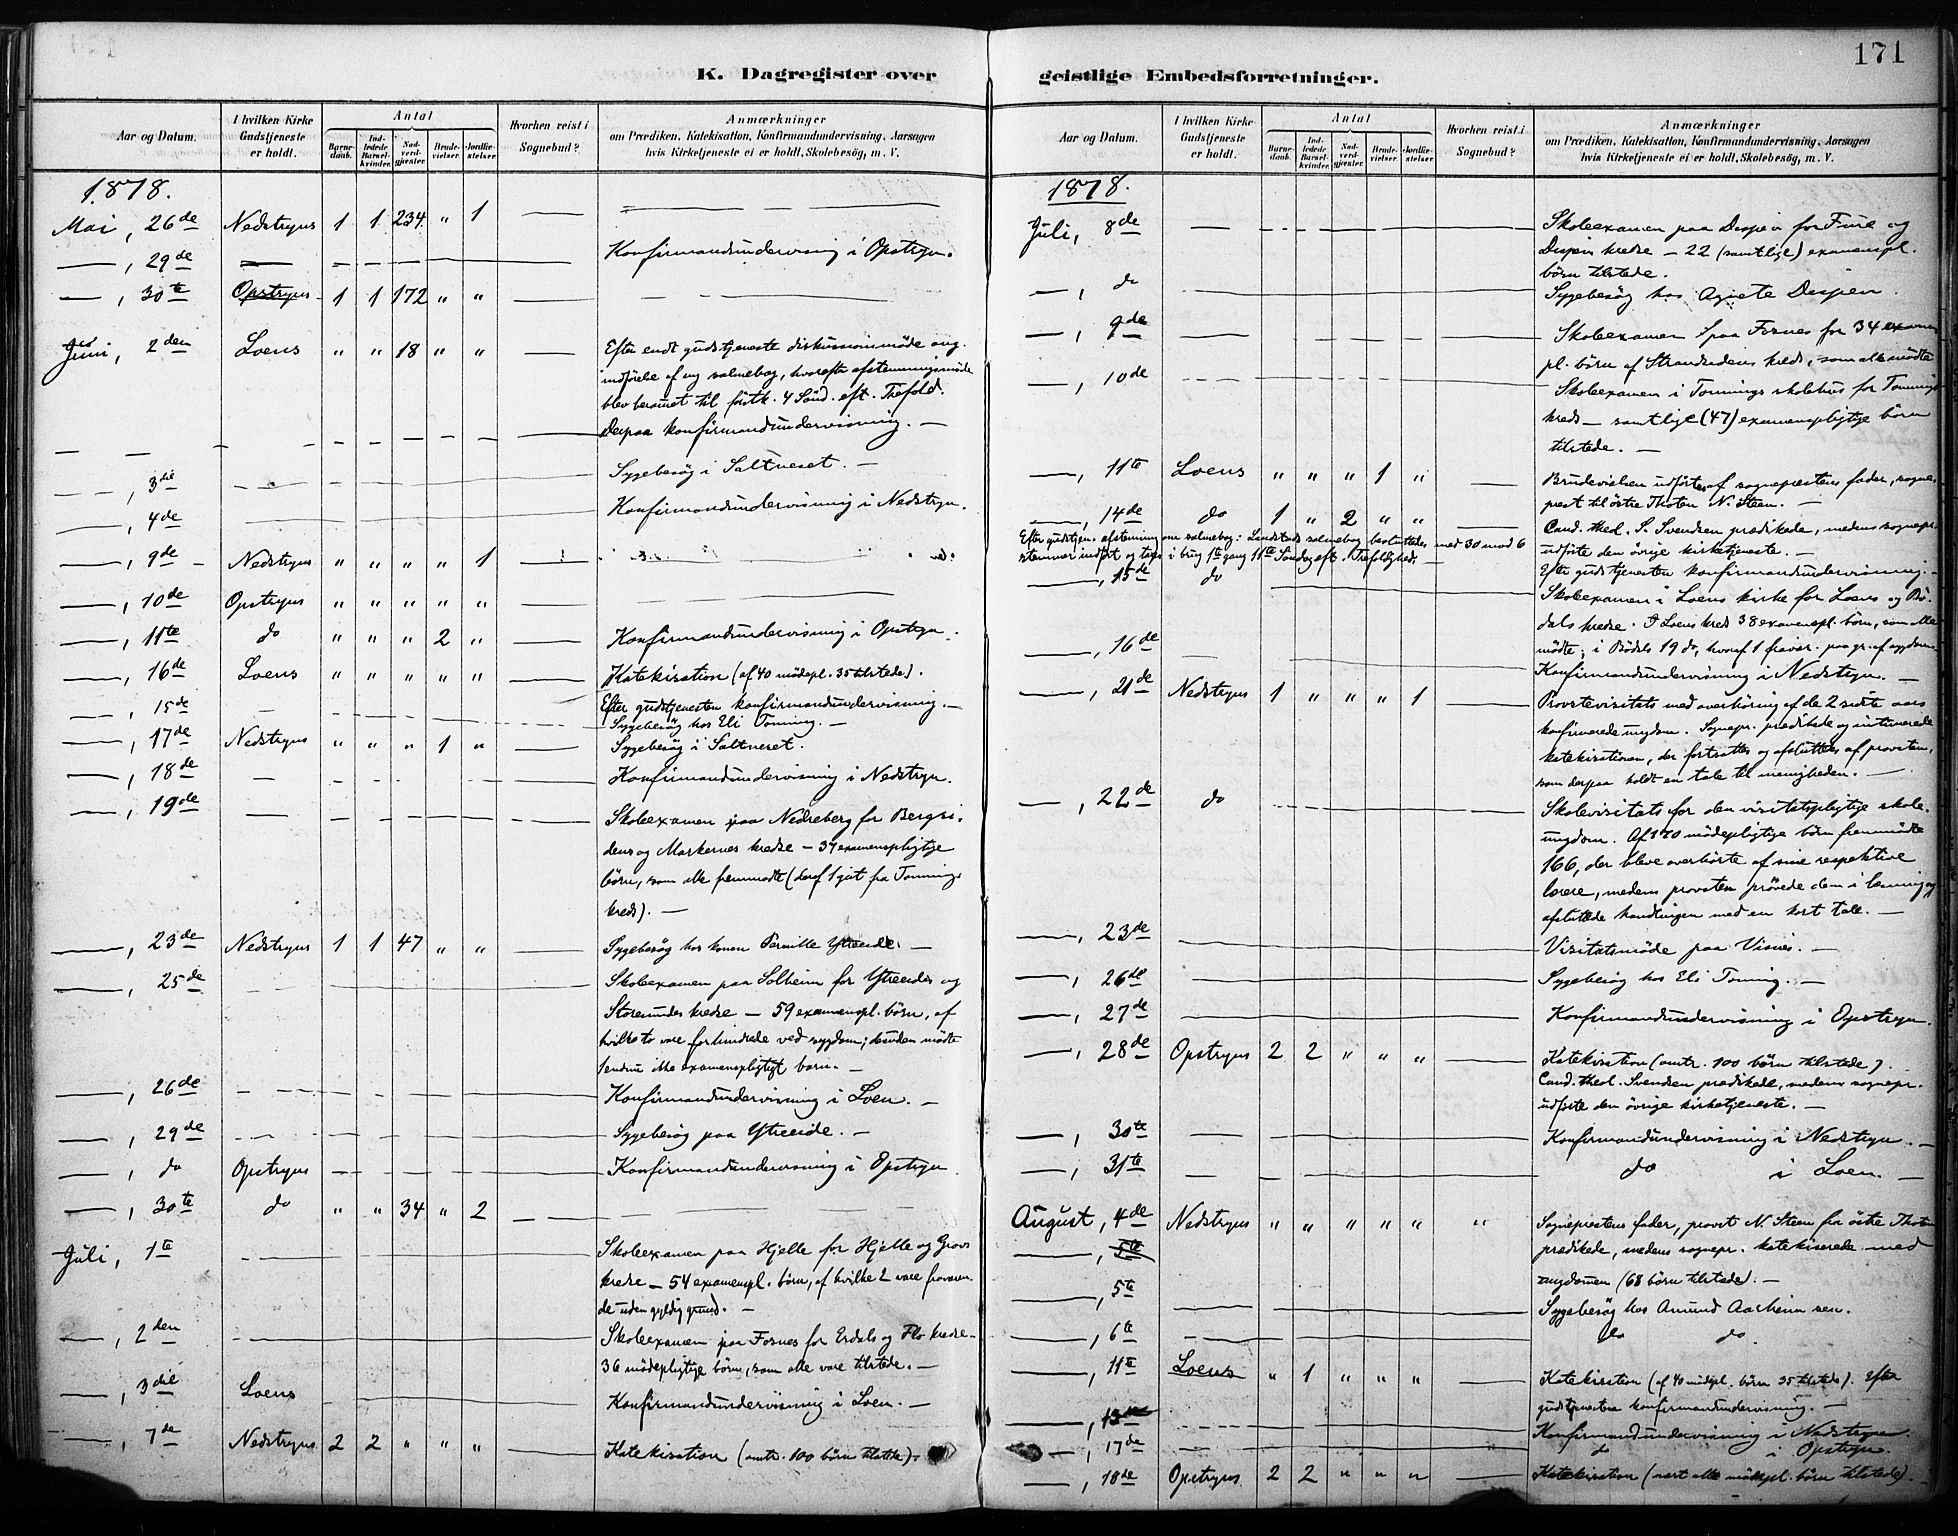 171
K. Dagregister over
Aar og Datum.
I hvilken Kirke Gudstjeneste er holdt.
Antal
Barnedaab.
Indledede Barselkvinder.
Nadverdgjester.
Brudevielser.
Jordfæstelser.
Hvorhen reist i Sognebud?
Anmærkninger
om Prædiken, Katekisation, Konfirmandundervisning, Aarsagen
hvis Kirketjeneste ei er holdt, Skolebesög, m. V.
1878.
Mai, 26de Nedstryns 1 1 234 " 1
, 29de Konfirmandundervisning i Opstryn.
, 30te Opstryns 1 1 172 " "
Juni, 2den Loens " " 18 " " Efter endt gudstjeneste diskussionsmöde ang.
indförelse af ny salmebog, hvorefter afstemningsmöde
blev berammet til förstk. 4 Sönd. eft. Trefold.
Derpaa konfirmandundervisning. —
, 3die Sygebesög i Saltneset. —
, 4de Konfirmandundervisning i Nedstryn.
, 9de Nedstryns " " " " 1
, 10de Opstryns " " " " "
, 11te do " " " 2 " Konfirmandundervisning i Opstryn.
, 16de Loens " " " " " Katekisation (af 40 mödepl. 35 tilstede).
Efter gudstjenesten konfirmandundervisning. —
, 15de — Sygebesög hos Eli Tonning. —
, 17de Nedstryns " " " 1 " Sygebesög i Saltneset.
, 18de — Konfirmandundervisning i Nedstryn.
, 19de — Skoleexamen paa Nedreberg for Bergsi-
dens og Markernes kredse — 37 examenspligtige
börn, som alle fremmödte (deraf 1 git fra Tonnings
kreds). —
, 23de Nedstryns 1 1 47 " " Sygebesög hos konen Pernille Ytreeide. —
, 25de Skoleexamen paa Solheim for Ytreeides og
Storesundes kredse — 59 examenspl. börn, af
hvilke to vare forhindrede ved sygdom; desuden mödte
endnu ikke examenspligtigt barn. —
, 26de Konfirmandundervisning i Loen. —
, 29de Sygebesög paa Ytreeide. —
, do Opstryns Konfirmandundervisning i Opstryn
, 30te do " " 34 " 2
Juli, 1te Skoleexamen paa Hjelle for Hjelle og Grovs
kredse — 54 examenspl. börn, af hvilke 2 vare fraværen-
de uden gyldig grund. —
, 2den Skoleexamen paa Fosnes for Erdals og Flo kredse —
36 mödepligtige börn, som alle vare tilstede. —
, 3die Loens Konfirmandundervisning i Loen. —
, 7de Nedstryns 2 2 " " " Katekisation (omtr. 100 börn tilstede).
geistlige Embedsforretninger.
Aar og Datum.
I hvilken Kirke Gudstjeneste er holdt.
Antal
Barnedaab.
Indledede Barselkvinder.
Nadverdgjester.
Brudevielser.
Jordfæstelser.
Hvorhen reist i Sognebud?
Anmærkninger
om Prædiken, Katekisation, Konfirmandundervisning, Aarsagen
hvis Kirketjeneste ei er holdt, Skolebesög, m. V.
1878.
Juli, 8de Skoleexamen paa Despen for Fure og
Despen kredse — 22 (samtlige) examenspl.
börn tilstede.
, do Sygebesög hos Agnete Despen.
, 9de Skoleexamen paa Fosnes for 34 examens
pl. börn af Strandsidens kreds, som alle mödte
, 10de Skoleexamen i Tonnings skolehus for Tonnings
kreds — samtlige (47) examenspligtige börn
tilstede. —
, 11te Loens " " " 1 " Brudevielsen udförtes af sogneprestens fader, sogne-
prest til östre Thoten N. Steen. —
, 14de do 1 " 2 " " Cand. theol. S. Svendsen prædikede, medens sognepr.
Efter gudstjen. afstemning om salmebog: Landstads salmebog besluttedes med 30 mod 6
udförte den övrige kirketjeneste. —
stemmer indfört og tages i brug 1te gang 11te Söndag eft. Trefoldighed. —
Efter gudstjenesten konfirmandundervisning. —
, 15de do Skoleexamen i Loens kirke for Loens og Bö-
dals kredse. I Loens kreds 38 examenspl. börn, som alle
, 16de mödte; i Bödals 19 do, hvoraf 1 fravær. paa gr. af sygdom.
Konfirmandundervisning i Nedstryn. —
, 21de Nedstryns 1 " " " 1 Provstevisitats med overhöring af de 2 sidste aars
konfirmerede ungdom. Sognepr. prædikede og intimerede
katekisationen, der fortsattes og afsluttedes af provsten,
som derpaa holdt en tale til menigheden. —
, 22de do Skolevisitats for den visitatspligtige skole-
ungdom. Af 170 mödepligtige börn fremmödte
166, der bleve overhörte af sine respektive
lærere, medens provsten prövede dem i læsning og
afsluttede handlingen med en kort tale. —
, 23de Visitatsmöde paa Visnes. —
, 26de Sygebesög hos Eli Tonning. —
, 27de Konfirmandundervisning i Opstryn.
, 28de Opstryns 2 2 " " " Katekisation (omtr. 100 börn tilstede).
Cand. theol. Svendsen prædikede, medens sognepr.
udförte den övrige kirketjeneste. —
, 30te Konfirmandundervisning i Nedstryn. —
, 31te do i Loen. —
August, 4de Nedstryns " " " " " " Sogneprestens fader, provst N. Steen fra östre Thoten
, 5te prædikede, medens sognepr. katekiserede med
ungdommen (68 börn tilstede). —
, 5te Sygebesög hos Amund Aarheim sen.
, 6te do do.
, 11te Loens " 1 " " " Katekisation (af 40 mödepl. börn 35 tilstede). Efter
gudstjenesten konfirmandundervisning. —
, 13de Konfirmandundervisning i Nedstryn
, 17de do i Opstryn.
, 18de Opstryns 2 2 " " " Katekisation (næst alle mödepl. börn tilstede). —